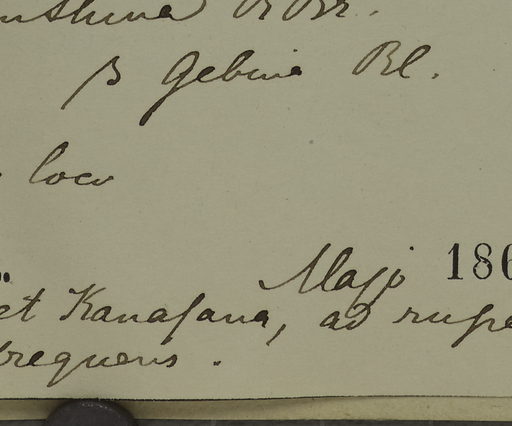 β Gebina Bl.
loco
Majo 186
et Kanasana, ad rupe
frequens.